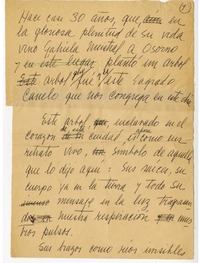 (1)
Hace casi 30 años, que en
la gloriosa plenitud de su vida
vino Gabriela Mistral a Osorno
y en este lugar plantó un árbol
Este árbol fué este sagrado
Canelo que nos congrega en este día
Este árbol, enclavado en el
corazón de esta ciudad, es ahora como un
retrato vivo, símbolo de aquella
que lo dejó aquí: Sus raíces, su
cuerpo ya en la tierra y todo su
mensaje en la luz
nuestra respiración
tros pulsos.
Sus brazos como ríos invisibles